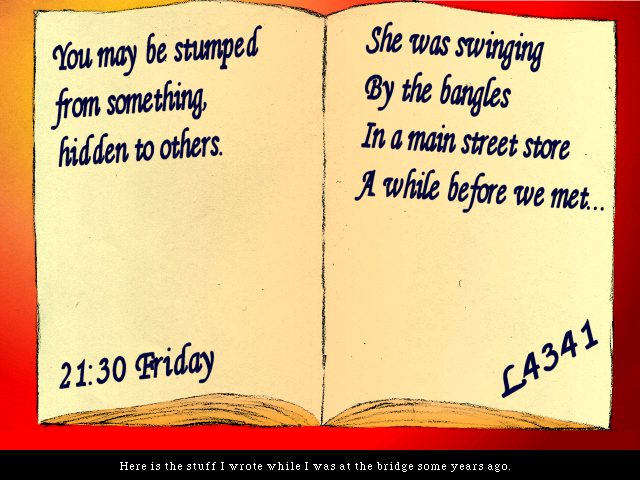 You may be stumped
from something,
hidden to others.
21:30 Friday
She was swinging
By the bangles
In a main street store
A while before we met...
L4341
Here is the stuff I wrote while I was at the bridge some years ago.